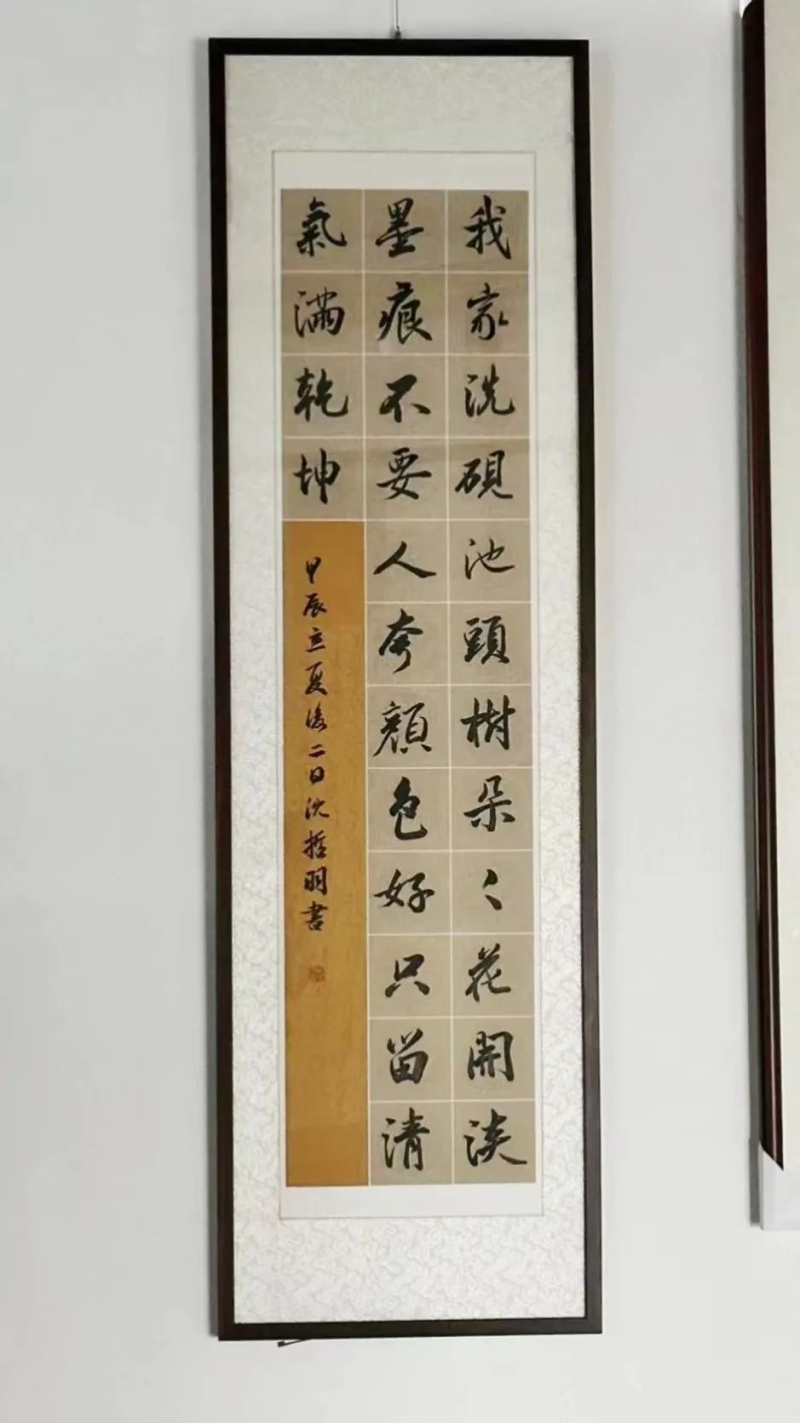 我家洗硯池頭樹朵〻花開淡
墨痕不要人夸顔色好只留清
氣滿乾坤
甲辰立夏後二日沈哲明書